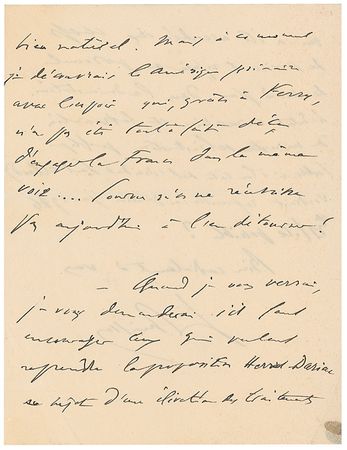 bien naturel. Mais à ce moment
je découvrais l'Amérique première
avec l'espoir qui, grâce à Ferry,
n'a pas été tout à fait déçu
d'engager la France dans la même
voie....
aujourd'hui à l'en détourner !
— Quand je vous verrai,
je vous demanderai s'il faut
encourager ceux qui veulent
reprendre la proposition Herriot-Dariac
au sujet d'une élévation des traitements